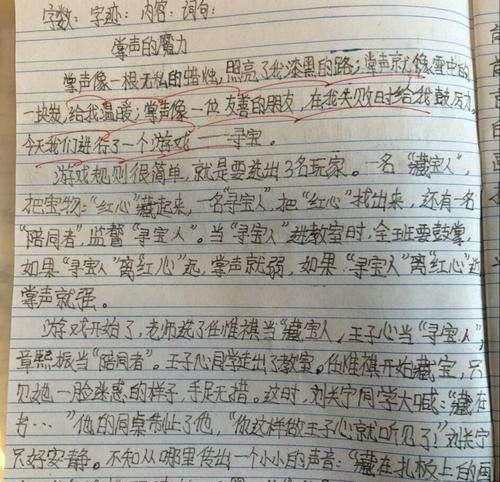 字数：字迹：内容：词句：
掌声的魔力
掌声像一根无私的蜡烛，照亮了我漆黑的路；掌声就像雪中的
一块炭，给我温暖；掌声像一位友善的朋友，在我失败时给我鼓励。
今天我们进行了一个游戏——寻宝。
游戏规则很简单，就是要选出3名玩家。一名“藏宝人”，
把宝物：“红心”藏起来，一名“寻宝人”，把“红心”找出来，还有一名
“陪同者”，监督“寻宝人”。当“寻宝人”进教室时，全班要鼓掌，
如果“寻宝人”离“红心”远，掌声就弱，如果“寻宝人”离“红心”近
掌声就强。
游戏开始了，老师选了任惟祺当“藏宝人，王子心当“寻宝人”，
章熙振当“陪同者”。王子心同学走出了教室。任惟祺开始藏宝，只
见她一脸迷惑的样子，手足无措。这时，刘长宁同学大喊：“藏在
书…”他的同桌制止了他，“你这样做王子心就听见了”刘长宁
只好安静。不知从哪里传出一个小小的声音：“藏在扎板上的